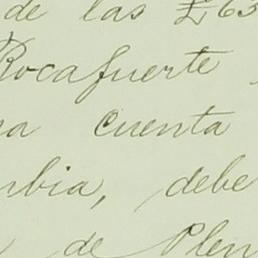 de las £63
Rocafuerte
na cuenta
mbia, debe
de Plen